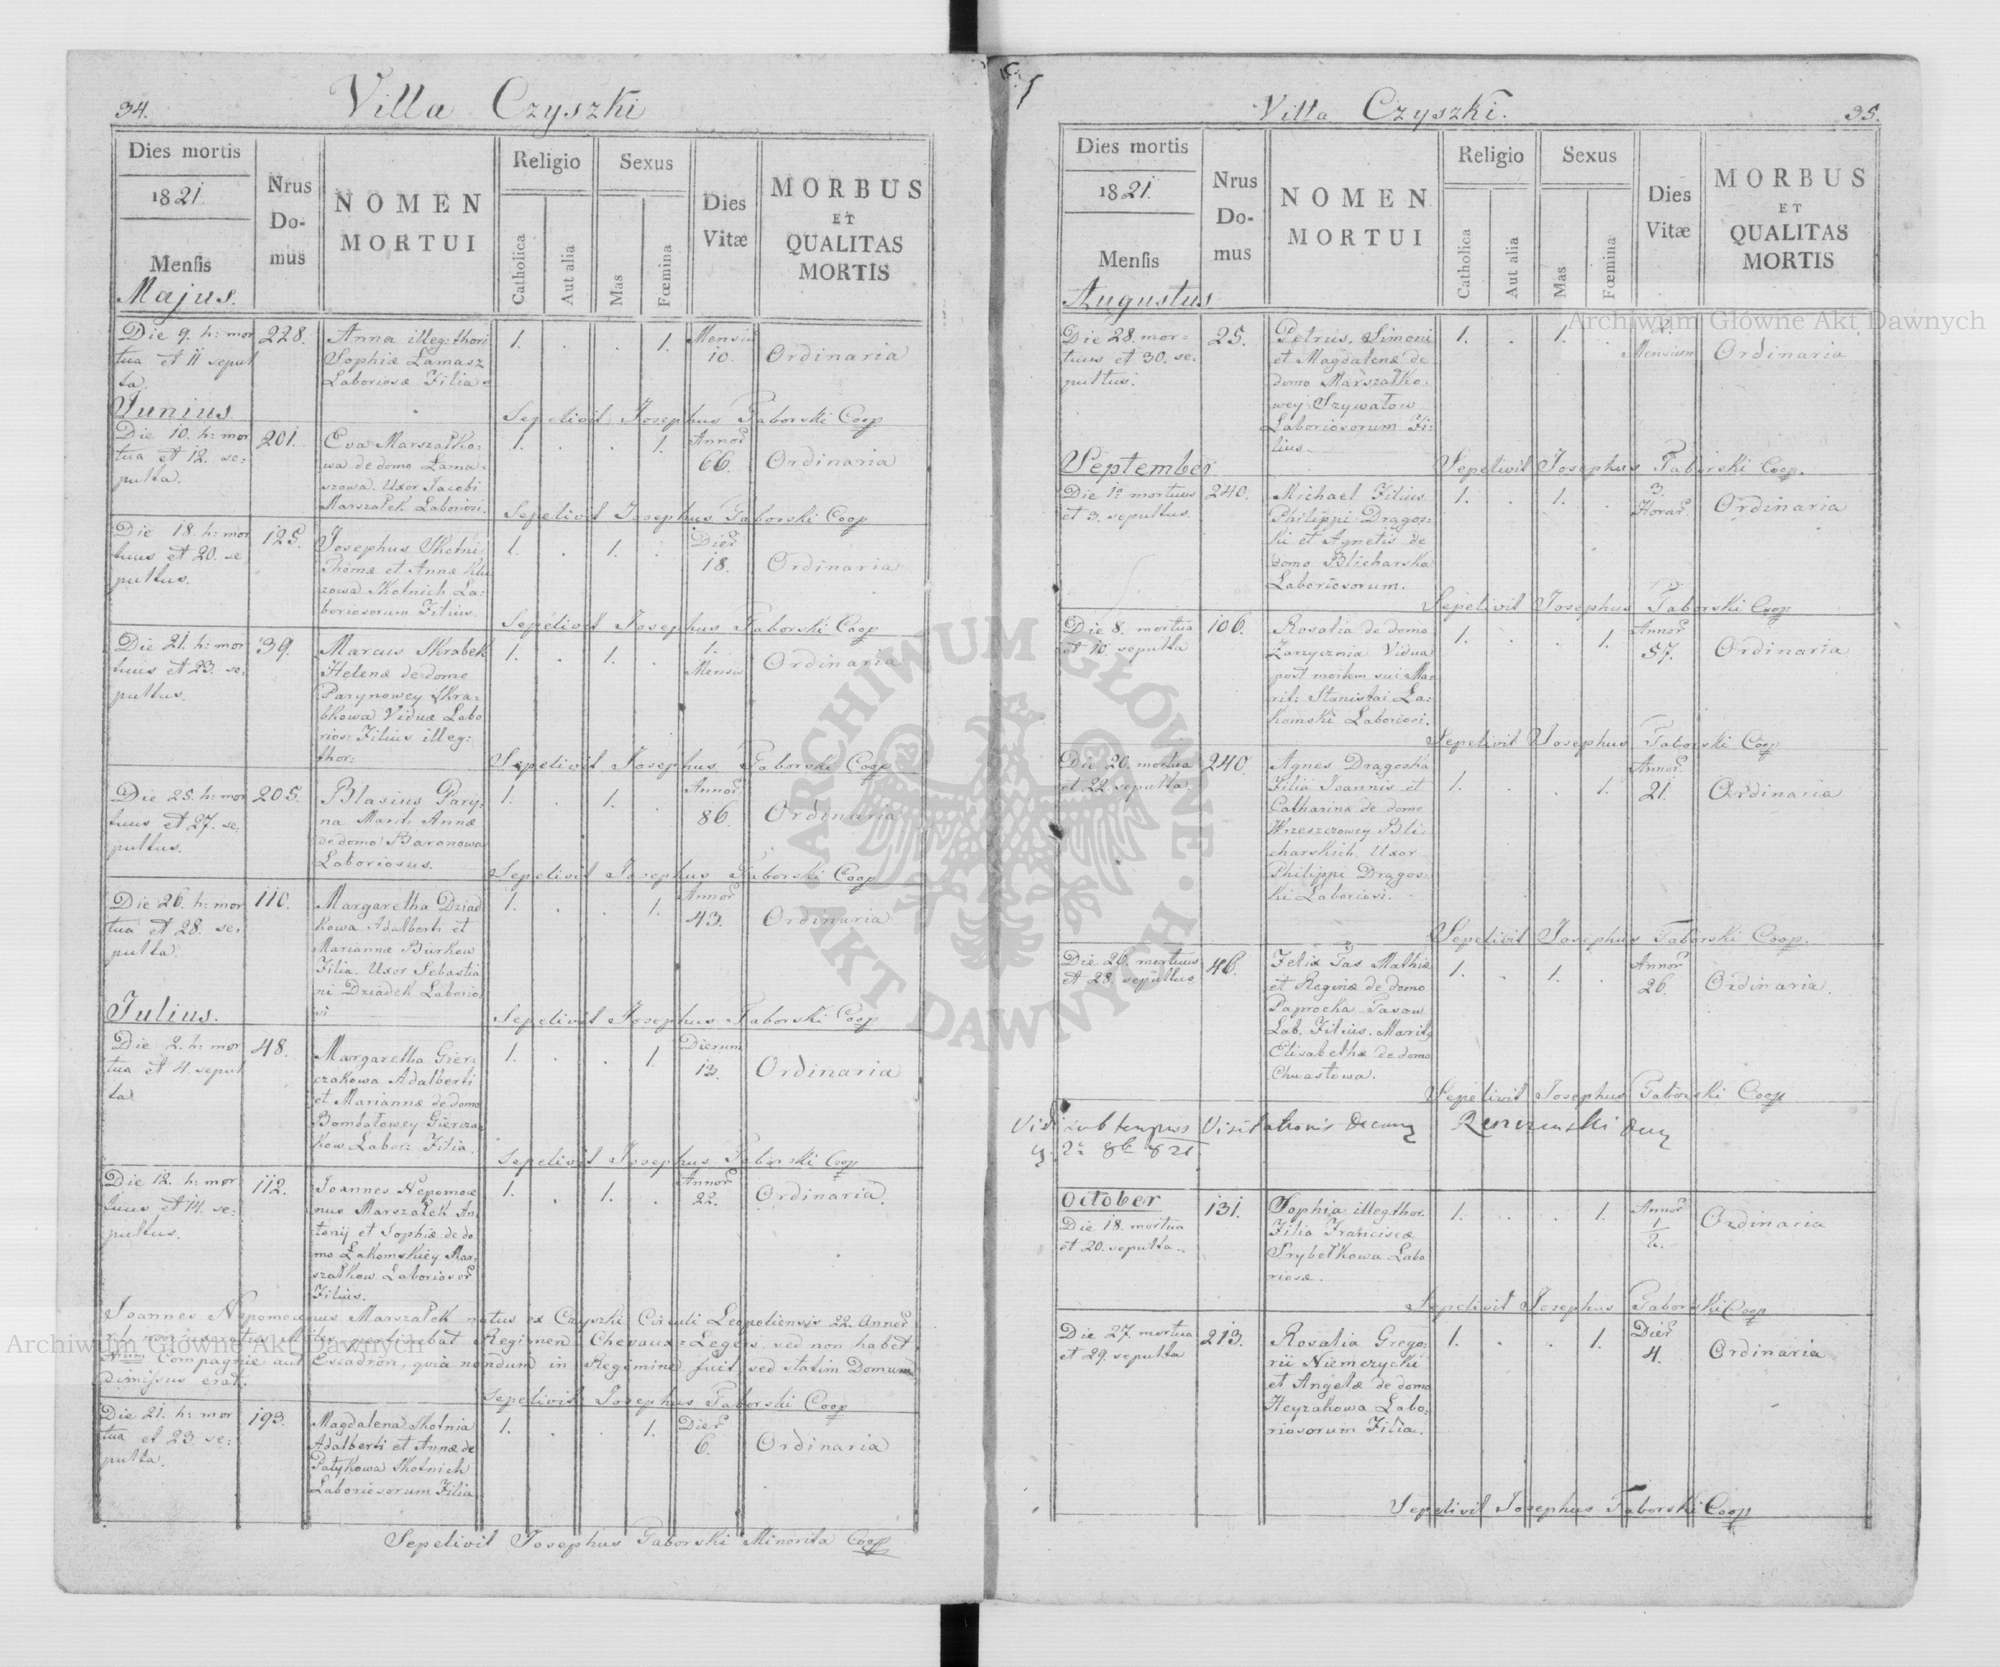 34.
Villa Czyszki
Dies mortis
1821.
Mensis
Majus.
Nrus
Do-
mus
NOMEN
MORTUI
Religio
Catholica
Aut alia
Sexus
Mas
Fœmina
Dies
Vitæ
MORBUS
ET
QUALITAS
MORTIS
Die 9. h: mor
tua et 11 sepul
ta.
228.
Anna illeg: thori
Sophiæ Lamasz
Laboriosæ Filia
1. . . 1.
Mensiu
10.
Ordinaria
Sepelivit Josephus Taborski Coop
Junius
Die 10. h: mor
tua et 12. se:
pulta.
201.
Eva Marszałko:
wa de domo Lama:
szowa. Uxor Jacobi
Marszałek Laboriosi.
1. . . 1.
Annor
66.
Ordinaria
Sepelivit Josephus Taborski Coop
Die 18. h: mor
tuus et 20. se
pultus.
125.
Josephus Skotni
Thomæ et Annæ Klu
zowa Skotnich La:
boriosorum Filius.
1. . 1. .
Dier
18.
Ordinaria
Sepelivit Josephus Taborski Coop
Die 21. h: mor
tuus et 23. se:
pultus.
39.
Marcus Skrabek
Helenæ de domo
Parynowey Skra:
bkowa Viduæ Labo
rios: Filius illeg:
thor:
1. . 1. .
1.
Mensis
Ordinaria
Sepelivit Josephus Taborski Coop
Die 25. h: mor
tuus et 27. se:
pultus.
205.
Blasius Pary:
na Marit: Annæ
de domo Baranowa
Laboriosus.
1. . 1. .
Annor
86.
Ordinaria
Sepelivit Josephus Taborski Coop
Die 26. h: mor
tua et 28. se:
pulta.
110.
Margaretha Dziad
kowa Adalberti et
Mariannæ Burkow
Filia. Uxor Sebastia
ni Dziadek Laborio:
si
1. . . 1.
Annor
43.
Ordinaria
Sepelivit Josephus Taborski Coop
Julius.
Die 2. h: mor
tua et 4. sepul
ta
48.
Margaretha Gier:
czakowa Adalberti
et Mariannæ de domo
Bombałowey Giercza:
kow Labor: Filia.
1. . . 1.
Dierum
13.
Ordinaria
Sepelivit Josephus Taborski Coop
Die 12. h: mor
tuus et 14. se:
pultus.
112.
Joannes Nepomoce
nus Marszałek An:
tonij et Sophiæ de do
mo Łakomskiey Mar:
szałkow Laboriosor
Filius.
1. . 1. .
Annor
22.
Ordinaria
Joannes Nepomocenus Marszałek natus ex Czyszki Circuli Leopoliensis 22. Annor
pertinebat Regimen Chevaux-Legers, sed non habet
Num Compagnie aut Escadron, quia nondum in Regimine fuit, sed statim Domum
dimissus erat.
Sepelivit Josephus Taborski Coop
Die 21. h: mor
tua et 23. se:
pulta.
193.
Magdalena Skotnia
Adalberti et Annæ de
Patykowa Skotnich
Laboriosorum Filia
1. . . 1.
Dier
6.
Ordinaria
Sepelivit Josephus Taborski Minorita Coop
Villa Czyszki.
35.
Dies mortis
1821.
Mensis
Augustus
Nrus
Do-
mus
NOMEN
MORTUI
Religio
Catholica
Aut alia
Sexus
Mas
Fœmina
Dies
Vitæ
MORBUS
ET
QUALITAS
MORTIS
Die 28. mor=
tuus et 30. se.
pultus.
25.
Petrus, Simoni
et Magdalenæ de
domo Marszałko:
wey Szywałow
Laboriosorum Fi:
lius.
1. . 1. .
Mensium
Ordinaria
Sepelivit Josephus Taborski Coop.
September
Die 1a mortuus
et 3. sepultus.
240.
Michael Filius
Philippi Dragos:
ki et Agnetis de
domo Blicharska
Laboriosorum.
1. . 1. .
3.
Horar
Ordinaria
Sepelivit Josephus Taborski Coop
Die 8. mortua
et 10 sepulta
106.
Rosalia de domo
Zarzycznia Vidua
post mortem sui Ma:
rit: Stanislai Ła:
komski Laboriosi.
1. . . 1.
Annor
57.
Ordinaria
Sepelivit Josephus Taborski Coop
Die 20. mortua
et 22. sepulta.
240.
Agnes Dragoska
Filia Joannis et
Catharinæ de domo
Wrzeszczowey Bli:
charskich. Uxor
Philippi Dragos:
ki Laboriosi.
1. . . 1.
Annor
21.
Ordinaria
Sepelivit Josephus Taborski Coop.
Die 26. mortuus
et 28. sepultus.
46.
Felix Pas Mathiæ
et Reginæ de domo
Paprocka Pasow
Lab. Filius. Marit9
Elisabethæ de domo
Chwastowa.
1. . 1. .
Annor
26.
Ordinaria.
Sepelivit Josephus Taborski Coop
Vidi sub tempus Visitationis
October
Die 18. mortua
et 20. sepulta.
131.
Sophia illeg: thor.
Filia Franciscæ
Prybelkowa Labo
riosæ.
1. . . 1.
Annor
1/2.
Ordinaria
Sepelivit Josephus Taborski Coop
Die 27. mortua
et 29. sepulta
213.
Rosalia Grego:
rii Niemczycki
et Angelæ de domo
Heyzakowa Labo:
riosorum Filia.
1. . . 1.
Dier
4.
Ordinaria
Sepelivit Josephus Taborski Coop
Archiwum Główne Akt Dawnych
Archiwum Główne Akt Dawnych
ARCHIWUM GŁÓWNE AKT DAWNYCH